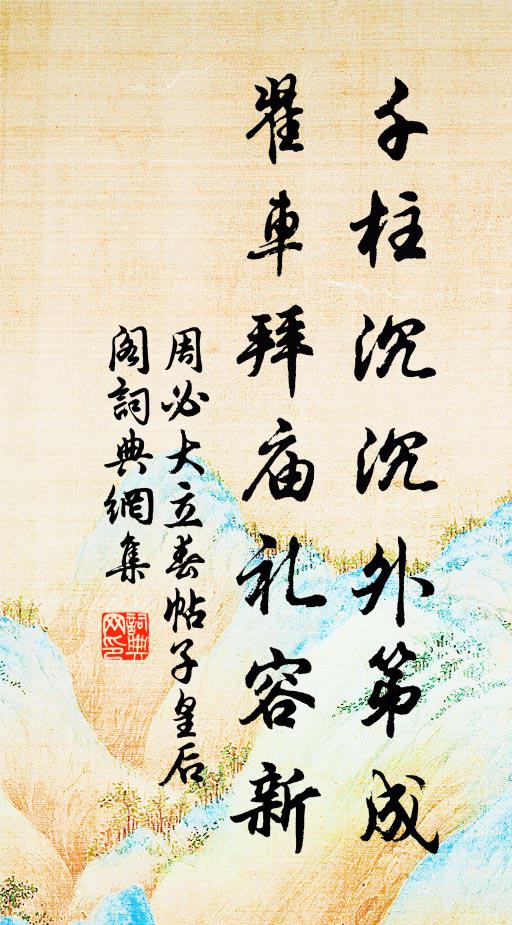 千柱沉沉外第成
翟車拜庙礼容新
周必大立春帖子皇后
阁詞典網集
詞典网印